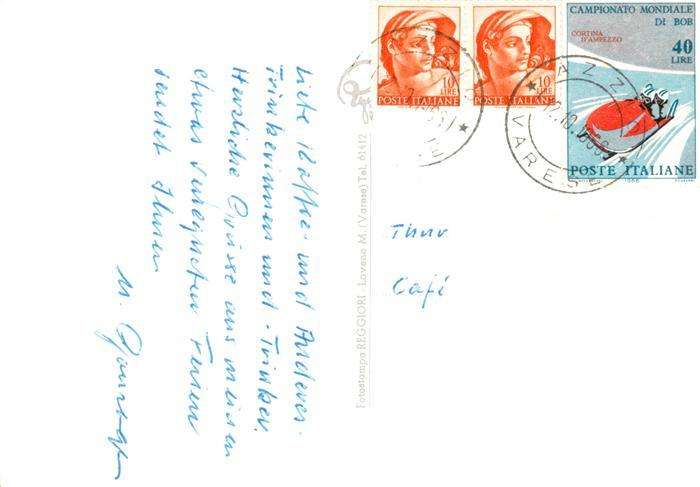 Liebe Kaffee- und Anderes-
Trinkerinnen und -Trinker.
Herzliche Grüsse aus meinen
etwas verregneten Ferien
sendet Ihnen
Fotostampa REGGIORI - Laveno M. (Varese) Tel. 61412
10
LIRE
POSTE ITALIANE
10
LIRE
POSTE ITALIANE
CAMPIONATO MONDIALE
DI BOB
CORTINA
D'AMPEZZO
40
LIRE
POSTE ITALIANE
1966
VARESE
Café